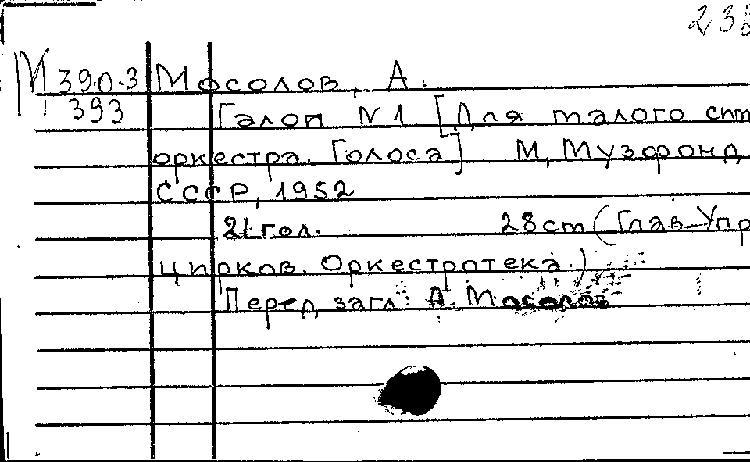 23
М 390-3 Мосолов, А.
393 Галоп №1 [Для малого
оркестра. Голоса] М, Музфонд
СССР, 1952
21 гол. 28 cm (Глав. Упр
цирков. Оркестротека.)
Перед загл: А. Мосолов